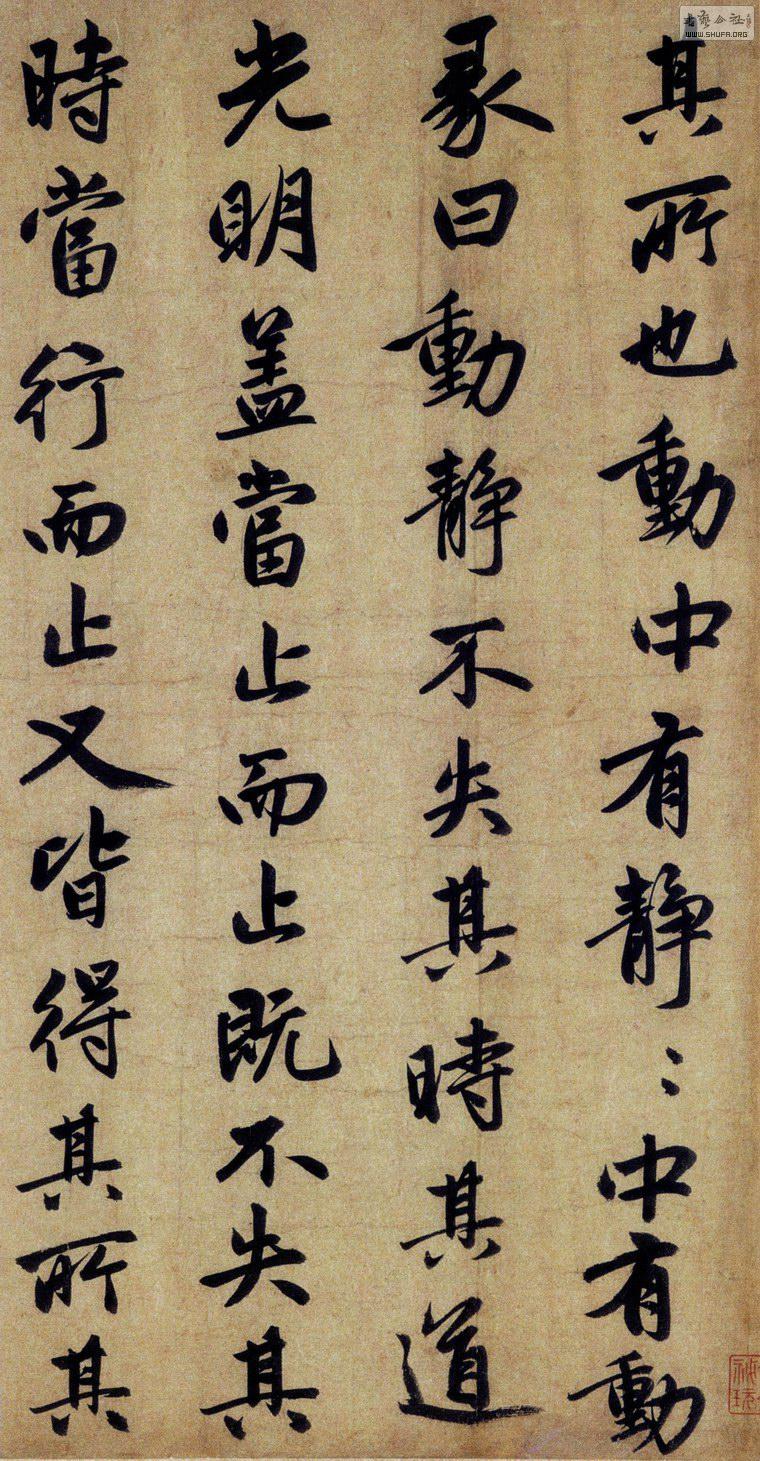 其所也動中有静〻中有動
彖曰動静不失其時其道
光明盖當止而止既不失其
時當行而止又皆得其所其
書藝公社
WWW.SHUFA.ORG